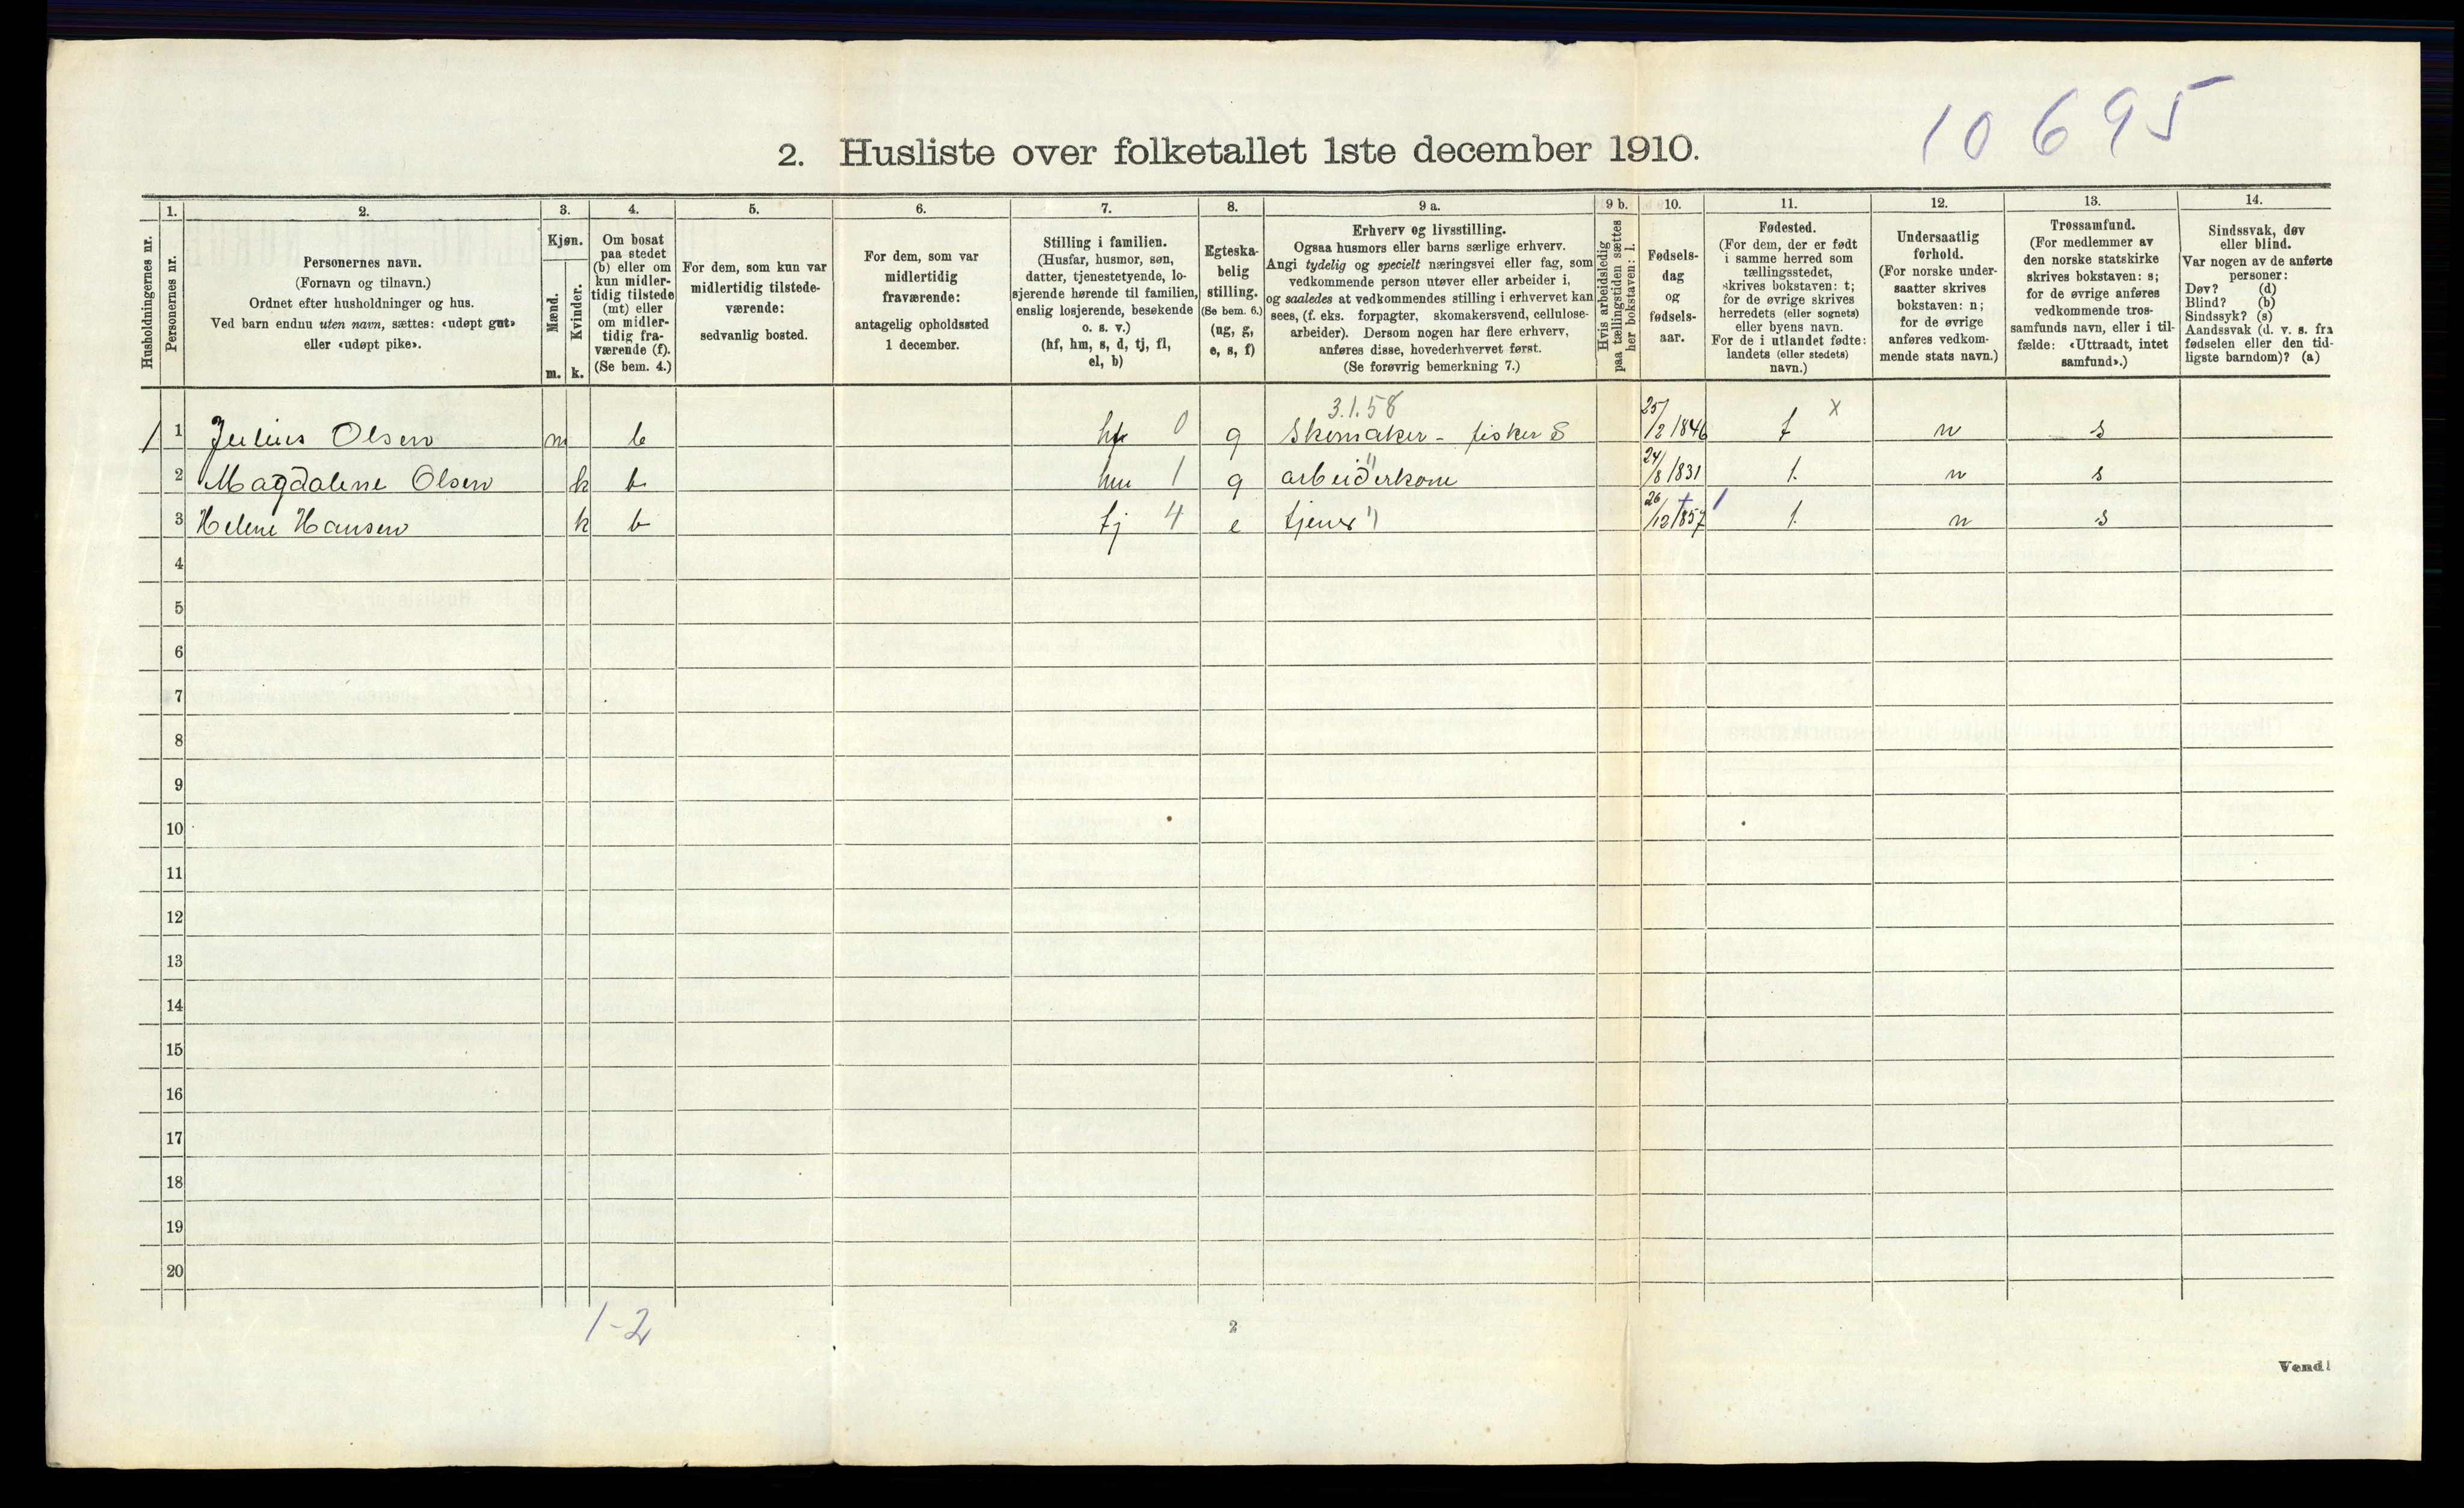 10 695
2. Husliste over folketallet 1ste december 1910.
Husholdningernes nr.
1.
Personernes nr.
2.
Personernes navn.
(Fornavn og tilnavn.)
Ordnet efter husholdninger og hus.
Ved barn endnu uten navn, sættes: «udøpt gut»
eller «udøpt pike».
3.
Kjøn.
Mænd.
Kvinder.
m. k.
4.
Om bosat
paa stedet
(b) eller om
kun midler-
tidig tilstede
(mt) eller
om midler-
tidig fra-
værende (f).
(Se bem. 4.)
5.
For dem, som kun var
midlertidig tilstede-
værende:
sedvanlig bosted.
6.
For dem, som var
midlertidig
fraværende:
antagelig opholdssted
1 december.
7.
Stilling i familien.
(Husfar, husmor, søn,
datter, tjenestetyende, lo-
sjerende hørende til familien,
enslig losjerende, besøkende
o. s. v.)
(hf, hm, s, d, tj, fl,
el, b)
8.
Egteska-
belig
stilling.
(Se bem. 6.)
(ug, g,
e, s, f)
9 a.
Erhverv og livsstilling.
Ogsaa husmors eller barns særlige erhverv.
Angi tydelig og specielt næringsvei eller fag, som
vedkommende person utøver eller arbeider i,
og saaledes at vedkommendes stilling i erhvervet kan
sees, (f. eks. forpagter, skomakersvend, cellulose-
arbeider). Dersom nogen har flere erhverv,
anføres disse, hovederhvervet først.
(Se forøvrig bemerkning 7.)
9 b.
Hvis arbeidsledig
paa tællingstiden sættes
her bokstaven: l.
10.
Fødsels-
dag
og
fødsels-
aar.
11.
Fødested.
(For dem, der er født
i samme herred som
tællingsstedet,
skrives bokstaven: t;
for de øvrige skrives
herredets (eller sognets)
eller byens navn.
For de i utlandet fødte:
landets (eller stedets)
navn.)
12.
Undersaatlig
forhold.
(For norske under-
saatter skrives
bokstaven: n;
for de øvrige
anføres vedkom-
mende stats navn.)
13.
Trossamfund.
(For medlemmer av
den norske statskirke
skrives bokstaven: s;
for de øvrige anføres
vedkommende tros-
samfunds navn, eller i til-
fælde: «Uttraadt, intet
samfund».)
14.
Sindssvak, døv
eller blind.
Var nogen av de anførte
personer:
Døv? (d)
Blind? (b)
Sindssyk? (s)
Aandssvak (d. v. s. fra
fødselen eller den tid-
ligste barndom)? (a)
3.1.58 x
1 1 Julius Olsen m b hf 0 g Skomaker - fisker S 25/2 1846 t n s
2 Magdalene Olsen k b hm 1 g arbeiderkone " 24/8 1831 t. n s
3 Helene Hansen k b tj 4 e tjener " 26/12 1857 t. n s
4
5
6
7
8
9
10
11
12
13
14
15
16
17
18
19
20
1-2
2
Vend!